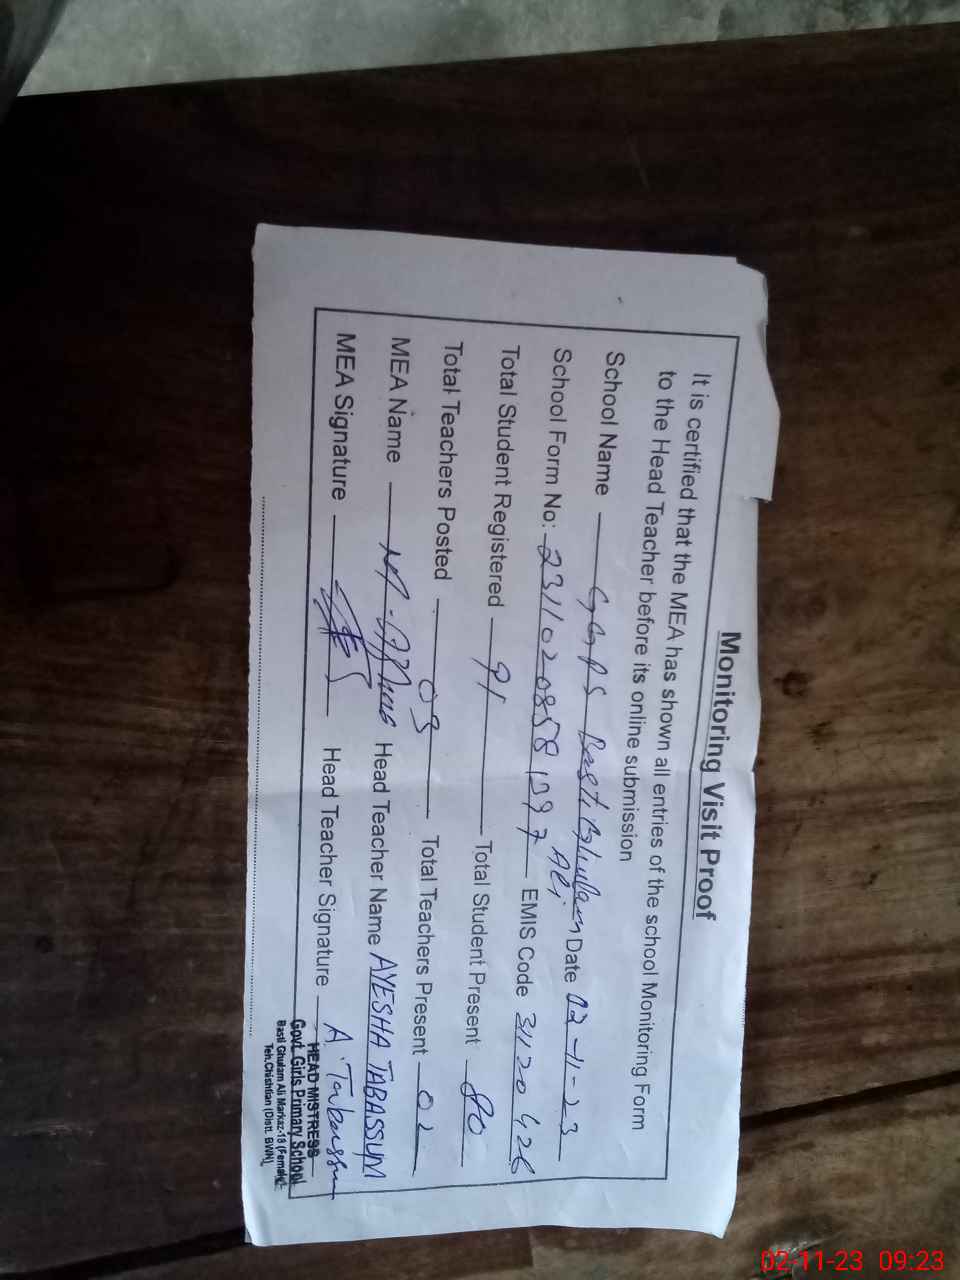 Monitoring Visit Proof
It is certified that the MEA has shown all entries of the school Monitoring Form
to the Head Teacher before its online submission
School Name GGPS Basti Ghulam Ali Date 02-11-23
School Form No: 2311020858 EMIS Code 31120426
Total Student Registered 91 Total Student Present 80
Total Teachers Posted 03 Total Teachers Present 02
MEA Name Head Teacher Name AYESHA TABASSUM
MEA Signature Head Teacher Signature A. Tabassum
HEAD MISTRESS
Govt. Girls Primary School
Basti Ghulam Ali Markaz-18 (Female)
Teh.Chishtian (Distt. BWN)
02-11-23 09:23